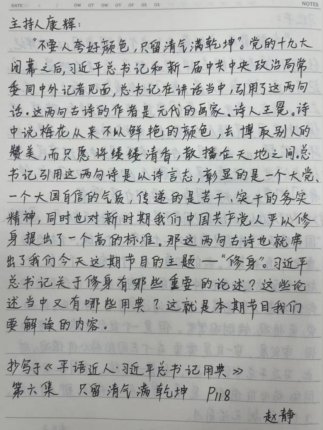 NOTES
主持人康辉:
"不要人夸好颜色,只留清气满乾坤"。党的十九大
闭幕之后,习近平总书记和新一届中共中央政治局常
委同中外记者见面,总书记在讲话当中,引用了这两句
话。这两句古诗的作者是元代的画家、诗人王冕。诗
中说梅花从来不以鲜艳的颜色,去博取别人的
赞美,而只愿将缕缕清香,散播在天地之间。总
书记引用这两句诗是以诗言志,彰显的是一个大党、
一个大国自信的气质,传递的是苦干、实干的务实
精神,同时也对新时期我们中国共产党人严以修
身提出了一个高的标准。那这两句古诗也就带
出了我们今天这期节目的主题——"修身"。习近平
总书记关于修身有哪些重要的论述?这些论
述当中又有哪些用典?这就是本期节目我们
要解读的内容。
抄写于《平语近人·习近平总书记用典》
第六集 只留清气满乾坤 P118
赵静